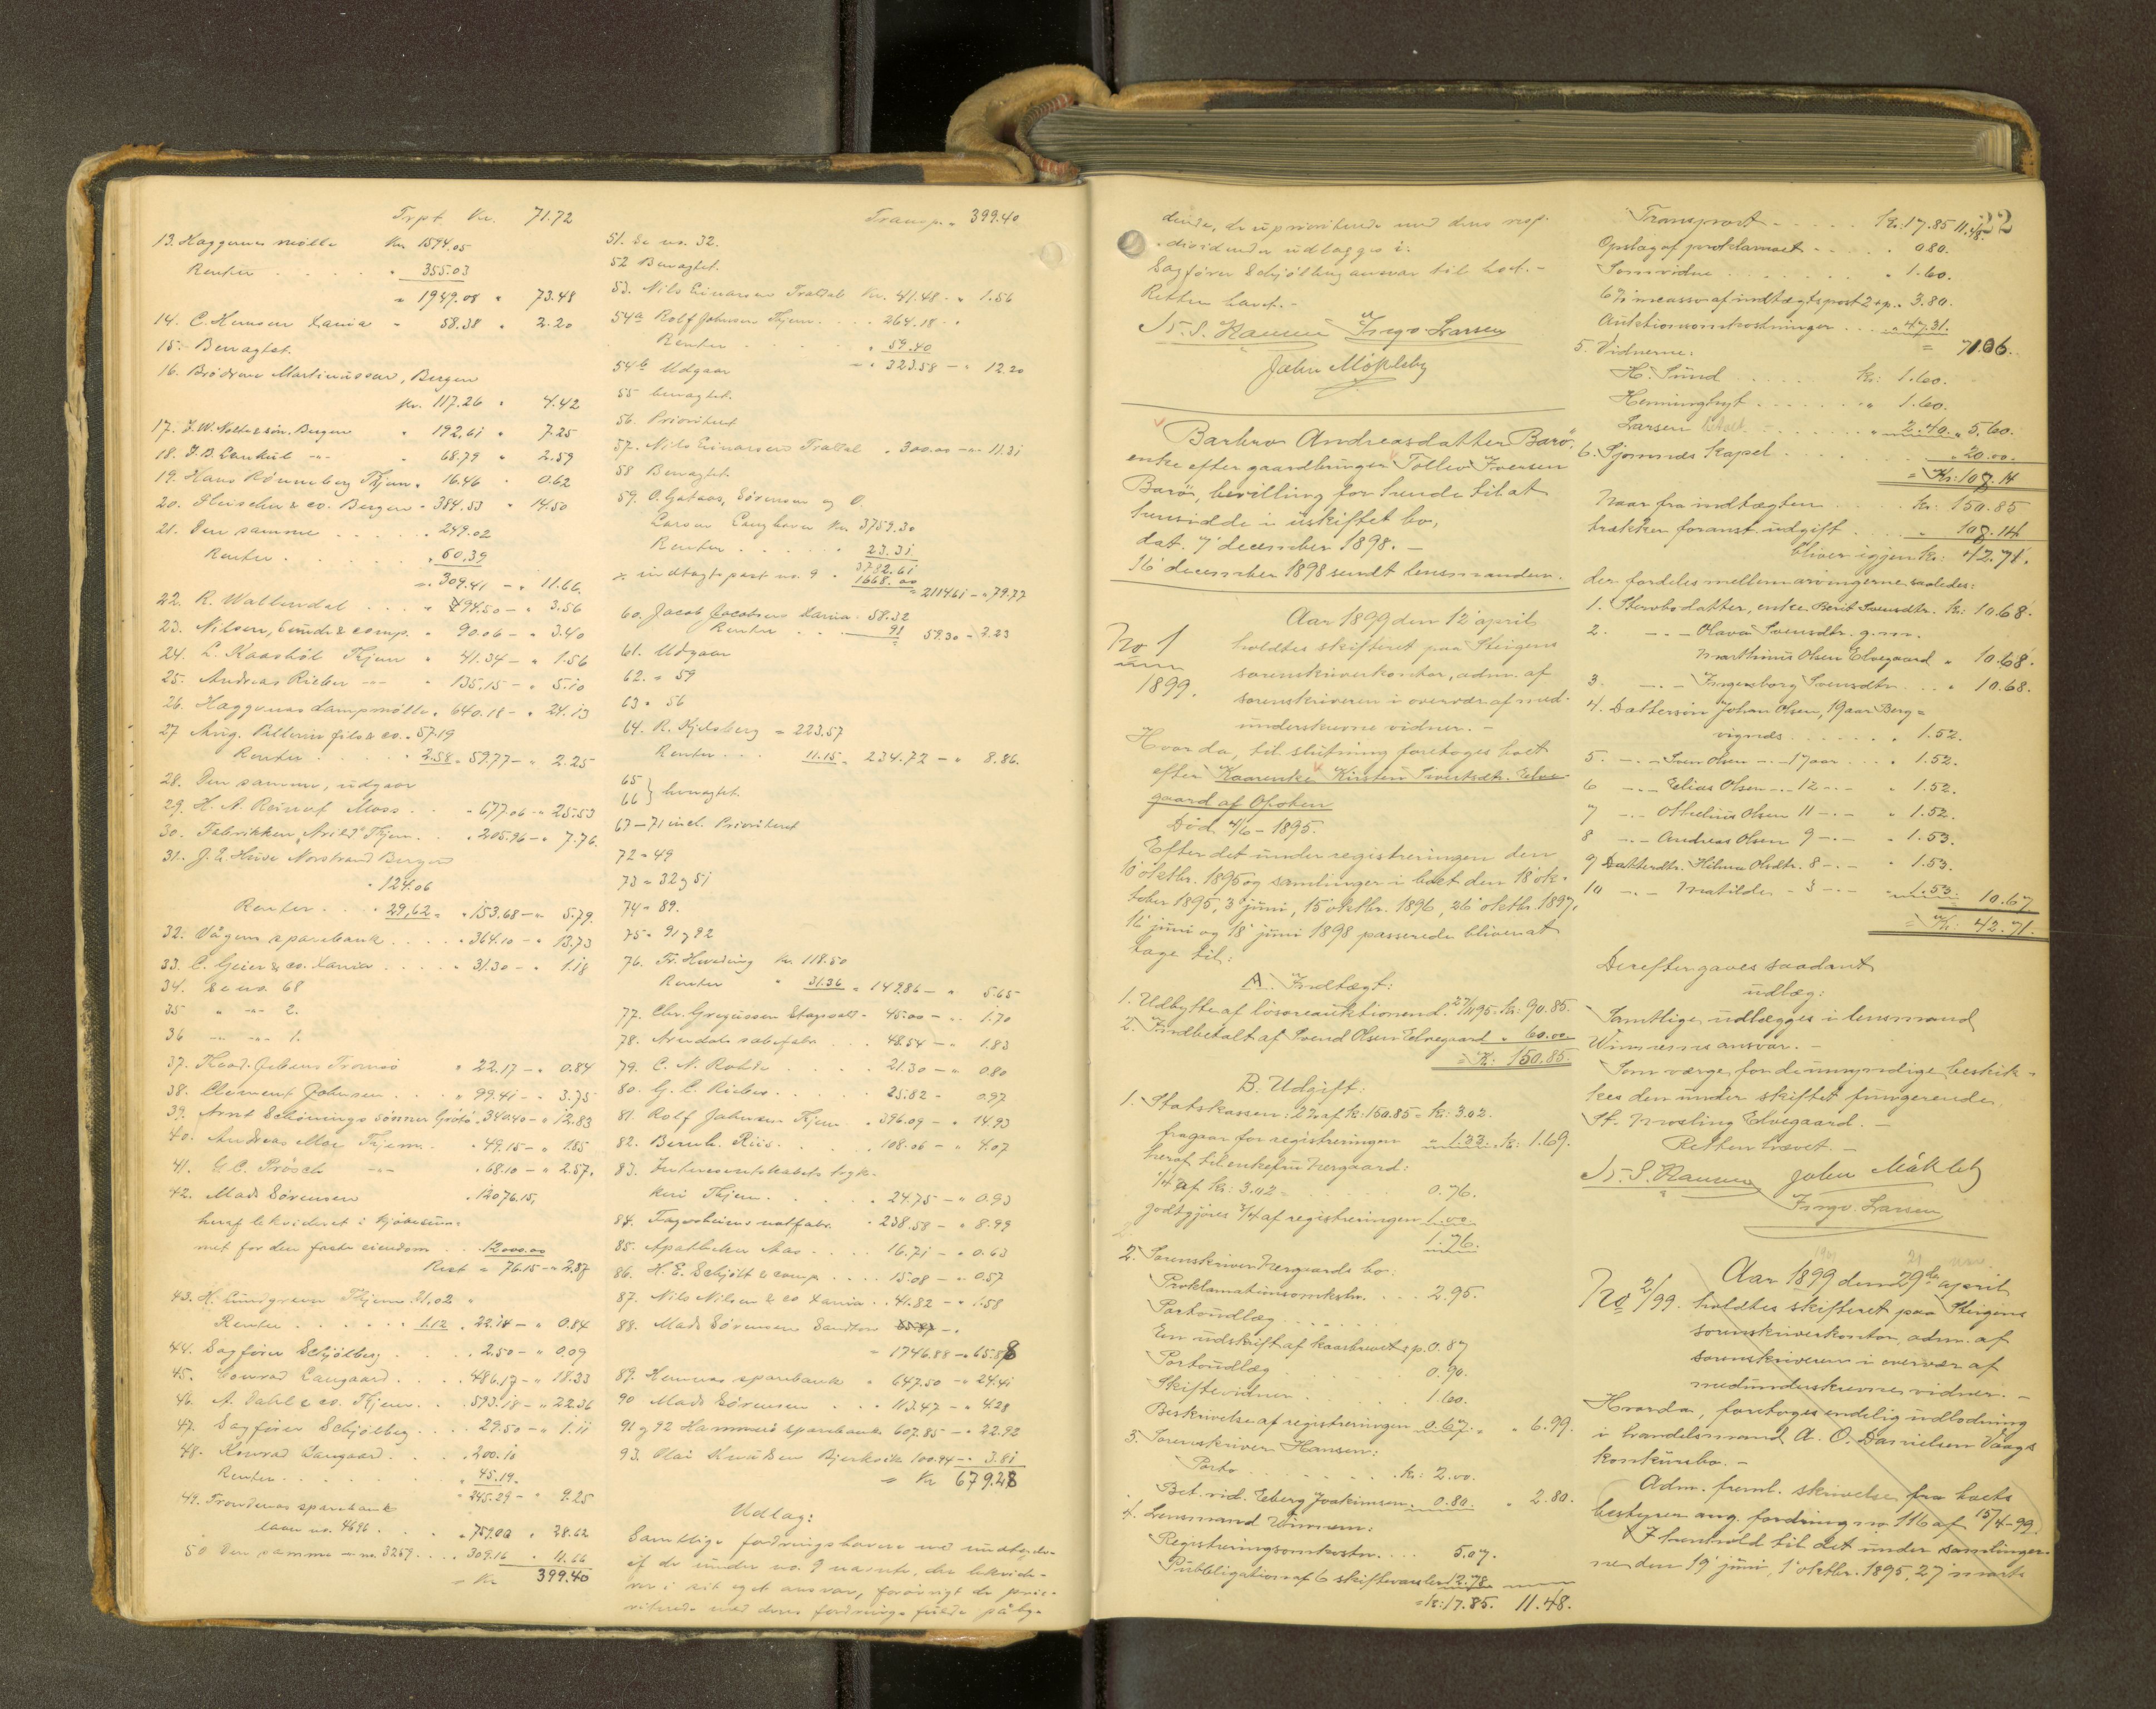 Trpt Kr. 71.72
13. Haggernes mølle Kr 1594.05
Renter . . . . . " 355.03
" 1949.08 " 73.48
14. C. Hansen Xania " 58.38 " 2.20
15. Benægtet.
16. Brødrene Martinussen, Bergen
Kr. 117.26 " 4.42
17. J. W. Nolte & søn. Bergen " 192,61 " 7.25
18. J. D. -"- " 68.79 " 2.59
19. Hans Rønneberg Thjem " 16.46 " 0.62
20. & co. Bergen " 384.53 " 14.50
21. Den samme . . . . . " 249.02
Renter . . . . " 60.39
" 309.41 - " 11.66
22. R. Wallendal . . . " 94.50 - " 3.56
23. Nilsen, Sund & comp. " 90.06 - " 3.40
24. L. Kaasbøl Thjem " 41.34 - " 1.56
25. Andreas Rieber -"- " 135,15 - " 5.10
26. Haggernes dampmølle " 640.18 - " 24.13
27 Aug. Pellerin fils & co. " 57.19
Renter . . . . " 2.58 " 59.77 - " 2.25
28. Den samme, udgaar
29. H. A. Reinert Moss . . - 677.06 - " 25.53
30. Fabrikken "Arild" Thjem . " 205.96 - " 7.76.
31. J. E. Huse Norstrand Bergen
" 124.06
Renter . . . " 29,62 = " 153.68 - " 5.79.
32. Vågens sparebank . . . . " 364.10 - " 13.73
33. C. Geier & co. Xania . . . . " 31.30 - " 1.18
34. Se no. 68
35 " -"- 2.
36 -"- -"- 1.
37. Konr. Jebens Tromsø " 22.17 - " 0.84
38. Clement Johnsen . . . " 99.41 - " 3.75
39. Arnt Schønings sønner Grøtø . 340.40 - " 12.83
40. Andreas Moe Thjem . " 49.15 - " 1.85
41. G. C. Prösch -"- " 68.10 - " 2.57.
42. Mads Sørensen " 12076.15,
heraf likvideret i kjøbesum-
met for den faste eiendom . . 12000.00
Rest = 76.15 - " 2.87
43. H. Lundgreen Thjem 21.02 "
Renter . . . . . . 1.12 " 22.14 - " 0.84
44. Sagfører Schjølberg . . . . 2.50 - " 0.09
45. Conrad Langaard . . . . 486.17 - " 18.33
46. A. Dahl & co. Thjem . . . 593.18 - " 22.36
47. Sagfører Schjølberg . . . . 29.50 - " 1.11
48. Konrad Langaard . . . . 200.10
Renter . . . . . . " 45.19.
" 245.29 - " 9.25
49. Trondenes sparebank
laan no. 4696 . . . . " 759.00 " 28.62
50 Den samme -"- no. 3259 . . . . " 309.16 " 11.66
= Kr 399.40
Transp. " 399.40
51. Se no. 32.
52 Benægtet.
53. Nils Einarsen Traldal Kr. 41.48 - " 1.56
54a Rolf Johnsen Thjem . . . . 264.18 . .
Renter . . . . . " 59.40
- " 323.58 - " 12.20
54b Udgaar
55 benægtet.
56. Prioriteret
57. Nils Einarsen Traldal " 300.00 -"- 11.31
58 Benægtet.
59. O. Gataas, Sørensen og O.
Larsen Langhaven Kr. 3759.30
Renter . . . . . . 23.31
3782.61
÷ indtægtspost no. 9 " 1668.00
" 2114.61 - " 79.77
60. Jacob Jacobsens Xania . 58.32
Renter . . . 91 59.30 - 2.23
61. Udgaar
62. " 59
63 " 56
64. R. Kjelsberg = 223.57
Renter . . . 11.15 " 234.72 - " 8.86.
65
66 } benægtet.
67 - 71 incl. Prioriteret
72 = 49
73 = 32 og 51
74 = 89.
75 = 91 og 92
76. Fr. Kr. 118.50
Renter " 31.36 = 149.86 - " 5.65
77. Chr. Gregussen - 45.00 - " 1.70
78. Arendals . . . 48.54 - " 1.83
79. C. N. Rohde . . . . . 21.30 - " 0.80
80. G. C. Rieber . . . . . 25.82 - 0.97
81. Rolf Johnsen Thjem . " 396.09 - " 14.93
82. Bernh. Riis . . . . . 108.06 - " 4.07
83. tryk-
keri Thjem . . . . . " 24.75 - " 0.93
84. Fagerheims notfabr. " 238.58 - " 8.99
85. Apotheker Aas . . . . 16.71 - " 0.63
86. H. E. Schjølt & comp . . . . 15.08 - " 0.57
87. Nils Nilsen & co Xania . . 41.82 - " 1.58
88. Mads Sørensen Sandtorv
" 1746.88 - " 65.88
89. Hemnes sparebank " 647.50 - " 24.41
90 Mads Sørensen . . . 113.47 - " 4.28
91 og 92 Hammerø sparebank 607.85 - " 22.92
93. Olai Bjerkvik 100.94 - " 3.81
= Kr 679.28
Udlæg:
Samtlige fordringshavere med undtagelse
af de under no. 9 nævnte, der likvide-
rer i sit eget ansvar, forøvrigt de prio-
riterede med deres fordringe fulde påly-
dende, de uprioriterede med dens resp.
dividender udlægges i
Sagfører Schjølbergs ansvar til boet. -
Retten hævet. -
N. S. Hansen Ingv. Larsen
John Mökleby
Barbro Andreasdatter Barö,
enke efter gaardbruger Tollev Iversen
Barö, bevilling for hende til at
hensidde i uskiftet bo,
dat. 7 december 1898. -
16 december 1898 sendt lensmanden.
No 1
1899.
Aar 1899 den 12 april
holdtes skifteret paa Steigens
sorenskriverkontor, adm. af
sorenskriveren i overvær af med-
underskrevne vidner. -
Hvor da, til slutning foretoges boet
efter Kaarenke Kirsten Sivertsdtr. Elve-
gaard af Ofoten
Död 4/6 - 1895.
Efter det under registreringen den
10 oktbr. 1895 og samlinger i boet den 18 ok-
tober 1895, 3 juni, 15 oktbr. 1896, 26 oktbr. 1897,
16 juni og 18 juni 1898 passerede bliver at
tage til:
A. Indtægt:
1. Udbytte af lösöreauktionen d. 27/11 95. kr: 90.85.
2. Indbetalt af Svend Olsen Elvegaard " 60.00
= Kr: 150.85.
B. Udgift:
1. Statskassen: 2% af kr: 150.85 = kr: 3.02.
fragaar for registreringen " 1.33. kr: 1.69.
heraf til enkefru Nergaard:
1/4 af kr: 3.02 = . . . . . . 0.76.
godtgjøres 3/4 af registreringen 1.00
1.76.
2. Sorenskriver Nergaards bo:
Proklamationsomkstn. . . . 2.95.
Portoudlæg . . . . . . .
Em udskrift af kaarbrevet s.p. 0.87
Portoudlæg . . . . . 0.90.
Skiftevidner . . . . . 1.60.
Beskrivelse af registreringen 0.67. " 6.99.
3. Sorenskriver Hansen:
Porto . . . . . . . kr: 2.00.
Bet. vid. Edberg Joakimsen . 0.80. " 2.80.
4. Lensmand Winnem:
Registreringsomkostn. . . . 5.07.
Publikation af 6 skiftevarsler 12.78
= kr: 17.85. 11.48.
22
Transport - . . . . . Kr: 17.85 11.48.
Opslag af proklamaet . . . . 0.80.
Som vidne . . . . . . . . " 1.60.
6% incasso af indtægtspost 2 s.p. " 3.80.
Auktionsomkostninger . . . " 47.31.
= 71.06.
5. Vidnerne:
H. Sund . . . . . kr: 1.60.
Henningbygt . . . . . . " 1.60.
Larsen betalt . . . . . " 2.40. " 5.60.
6. Gjømnæs Kapel . . . . . . . " 20.00.
= Kr: 108.14
Naar fra indtægten . . . . . kr: 150.85
trækker foranst. udgift . . . . " 108.14
bliver igjen kr: 42.71.
der fordeles mellem arvingerne saaledes:
1. Stervbodatter, enke Berit Svensdtr. kr: 10.68.
2. -"- Olava Svensdtr. g.m.
Marthinus Olsen Elvegaard " 10.68.
3. -"- Ingeborg Svensdtr. . . " 10.68.
4. Dattersön Johan Olsen, 19 aar Berg=
vignæs . . . . . . " 1.52.
5. -"- Sven Olsen -"- 17 aar . . . " 1.52.
6 -"- Elias Olsen -"- 12 -"- " 1.52.
7 -"- Othelius Olsen 11 -"- " 1.52.
8 -"- Andreas Olsen 9 -"- " 1.53.
9 Datterdtr. Hilma Olsdtr. 8 -"- " 1.53.
10 -"- Matilde - 3 -"- " 1.53. 10.67
= Kr: 42.71.
Derefter gaves saadant
udlæg:
Samtlige udlægges i lensmand
Winnems ansvar. -
Som værge for de umyndige beskik-
kes den under skiftet fungerende
St. Mosling Elvegaard. -
Retten hævet. -
N. S. Hansen John Mökleby
Ingv. Larsen
No 2/99.
Aar 1899 den 29de april
holdtes skifteret paa Steigens
sorenskriverkontor, adm. af
sorenskriveren i overvær af
medunderskrevne vidner. -
Hvorda, foretoges endelig udlodning
i handelsmand A. O. Danielsen Vaags
konkursbo. -
Adm. freml. skrivelse fra boets
bestyrer ang. fordring no 116 af 15/4-99.
I henhold til det under samlinger-
ne den 19 juni, 1 oktbr. 1895, 27 marts